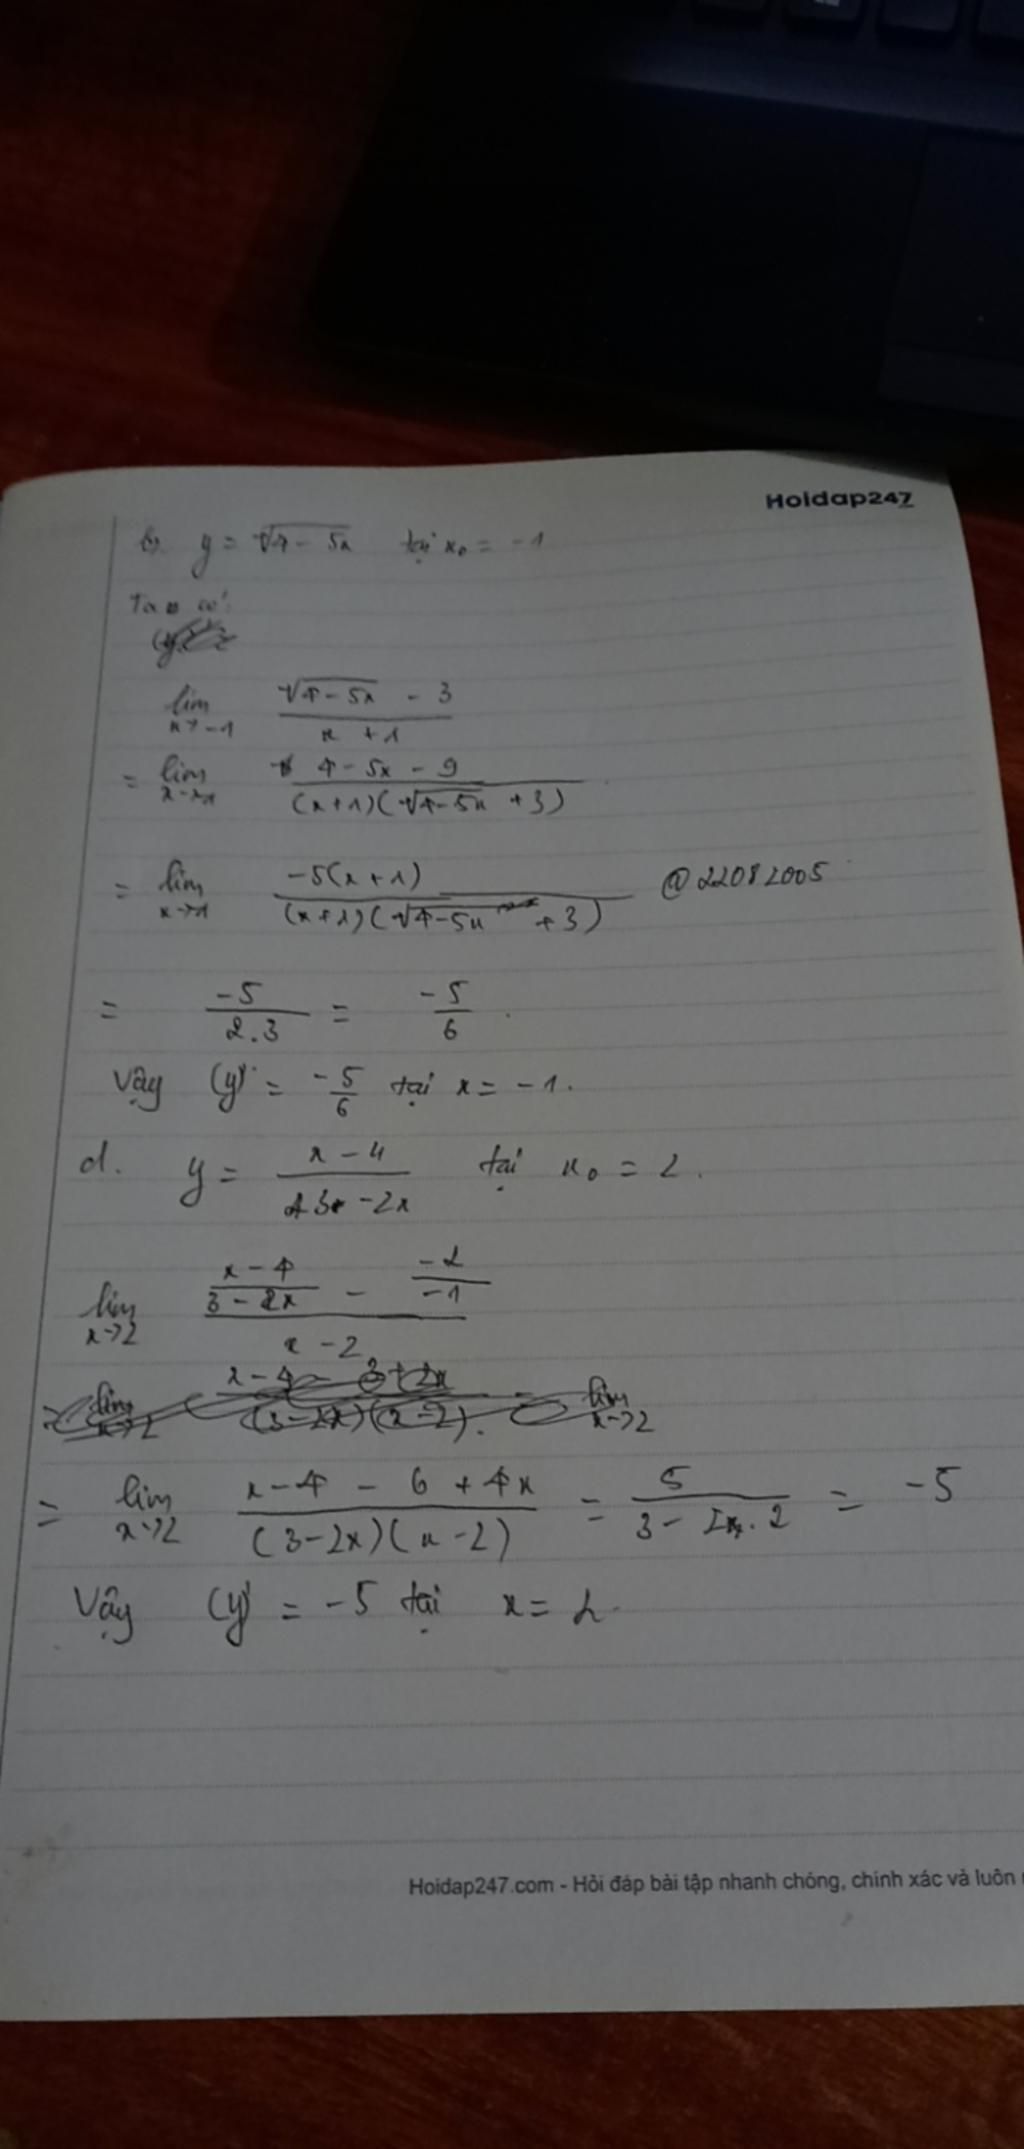 Hoidap247
b. y = √4 - 5x tại x₀ = -1
Ta có:
lim x→-1 (√4-5x - 3)/(x + 1)
= lim (4 - 5x - 9)/((x+1)(√4-5x + 3))
= lim x→1 (-5(x+1))/((x+1)(√4-5x + 3)) @22082005
= -5/2.3 = -5/6.
Vậy (y)' = -5/6 tại x = -1.
d. y = (x - 4)/(3 - 2x) tại x₀ = 2.
lim x→2 ((x-4)/(3-2x) - (-2)/(-1))/(x-2)
lim x→2 (x-4-3+2x)/((3-2x)(x-2)). lim x→2
= lim x→2 (x-4 - 6 + 4x)/((3-2x)(x-2)) = 5/(3 - 2.2) = -5
Vậy (y)' = -5 tại x = 2.
Hoidap247.com - Hỏi đáp bài tập nhanh chóng, chính xác và luôn